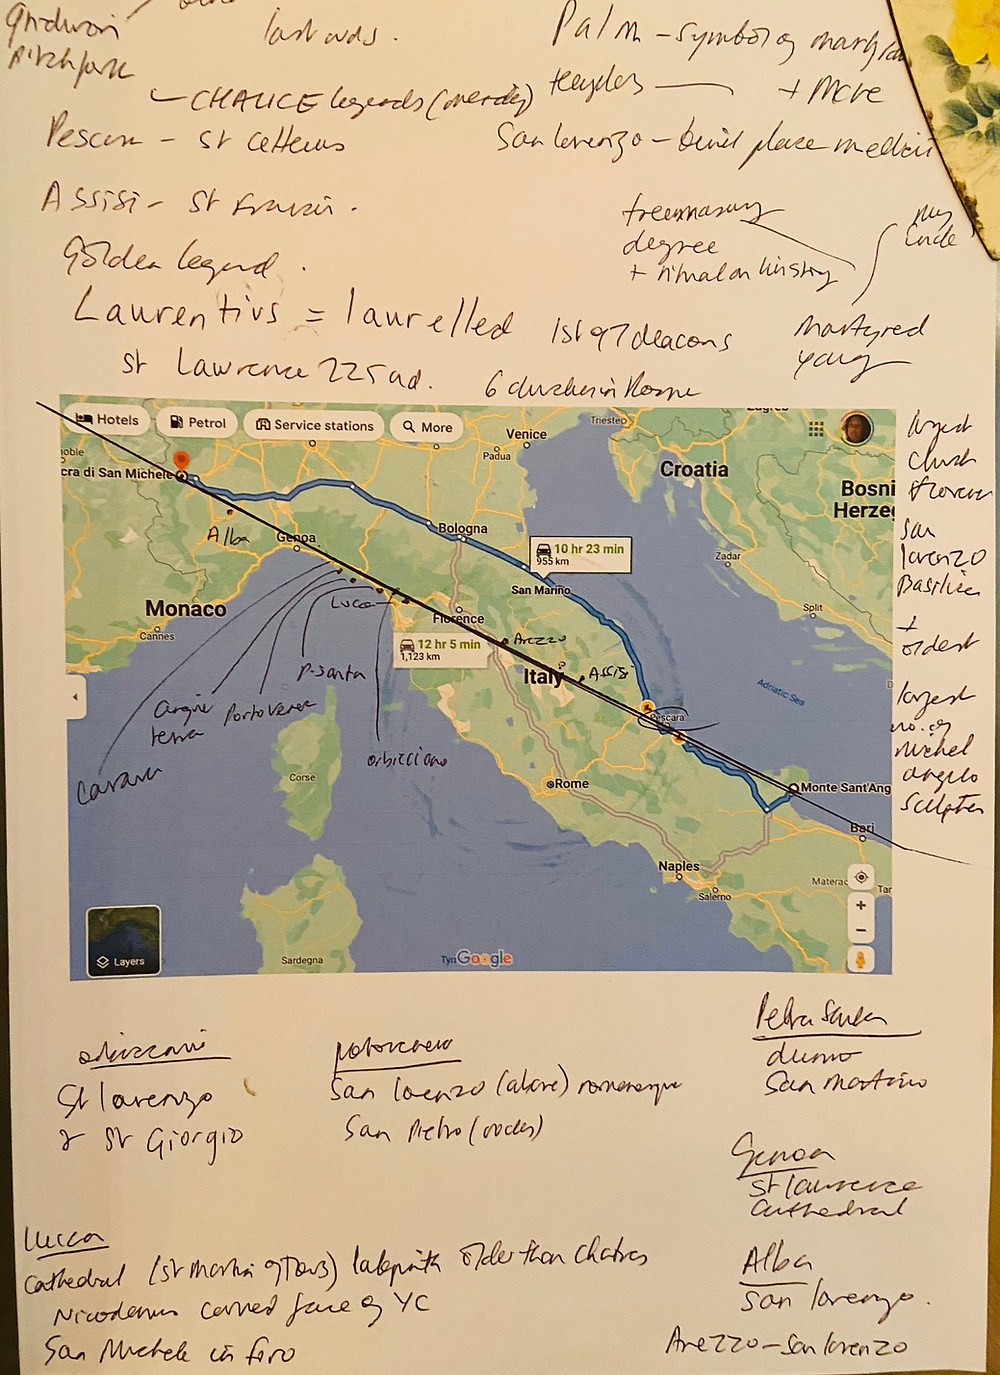 Palm - symbol of
+ more
CHALICE legends
San Lorenzo - burial place medici
Assisi - St Francis.
freemasonry
degree
+ ritual on
Golden legend.
Laurentius = laurelled
1st of 7 deacons
martyred
young
St Lawrence 225 ad.
6 churches in Rome
Hotels
Petrol
Service stations
More
Venice
Padua
Triesteo
Croatia
Bosni
Herzeg
cra di San Michele
Alba
Genoa
Bologna
10 hr 23 min
955 km
Zadar
San Marino
Split
Monaco
Cannes
Lucca
Florence
12 hr 5 min
1,123 km
Arezzo
Italy
Assisi
Adriatic Sea
P-Santa
Portovenere
Pescara
Corse
Rome
Monte Sant'Ang
Bari
Naples
Salerno
Materac
Tar
Layers
Sardegna
Google
largest
church
Florence
San
Lorenzo
Basilica
+
oldest
largest
no. of
Michel
angelo
sculptures
Petra Santa
duomo
San Martino
St Lorenzo
& St Giorgio
San Lorenzo (above) romanesque
San Pietro
Genoa
St Laurence
Cathedral
Lucca
Cathedral (St Martin of Tours) labyrinth older than Chatres
Nicodemus carved face of YC
San Michele in foro
Alba
San Lorenzo.
Arezzo - San Lorenzo